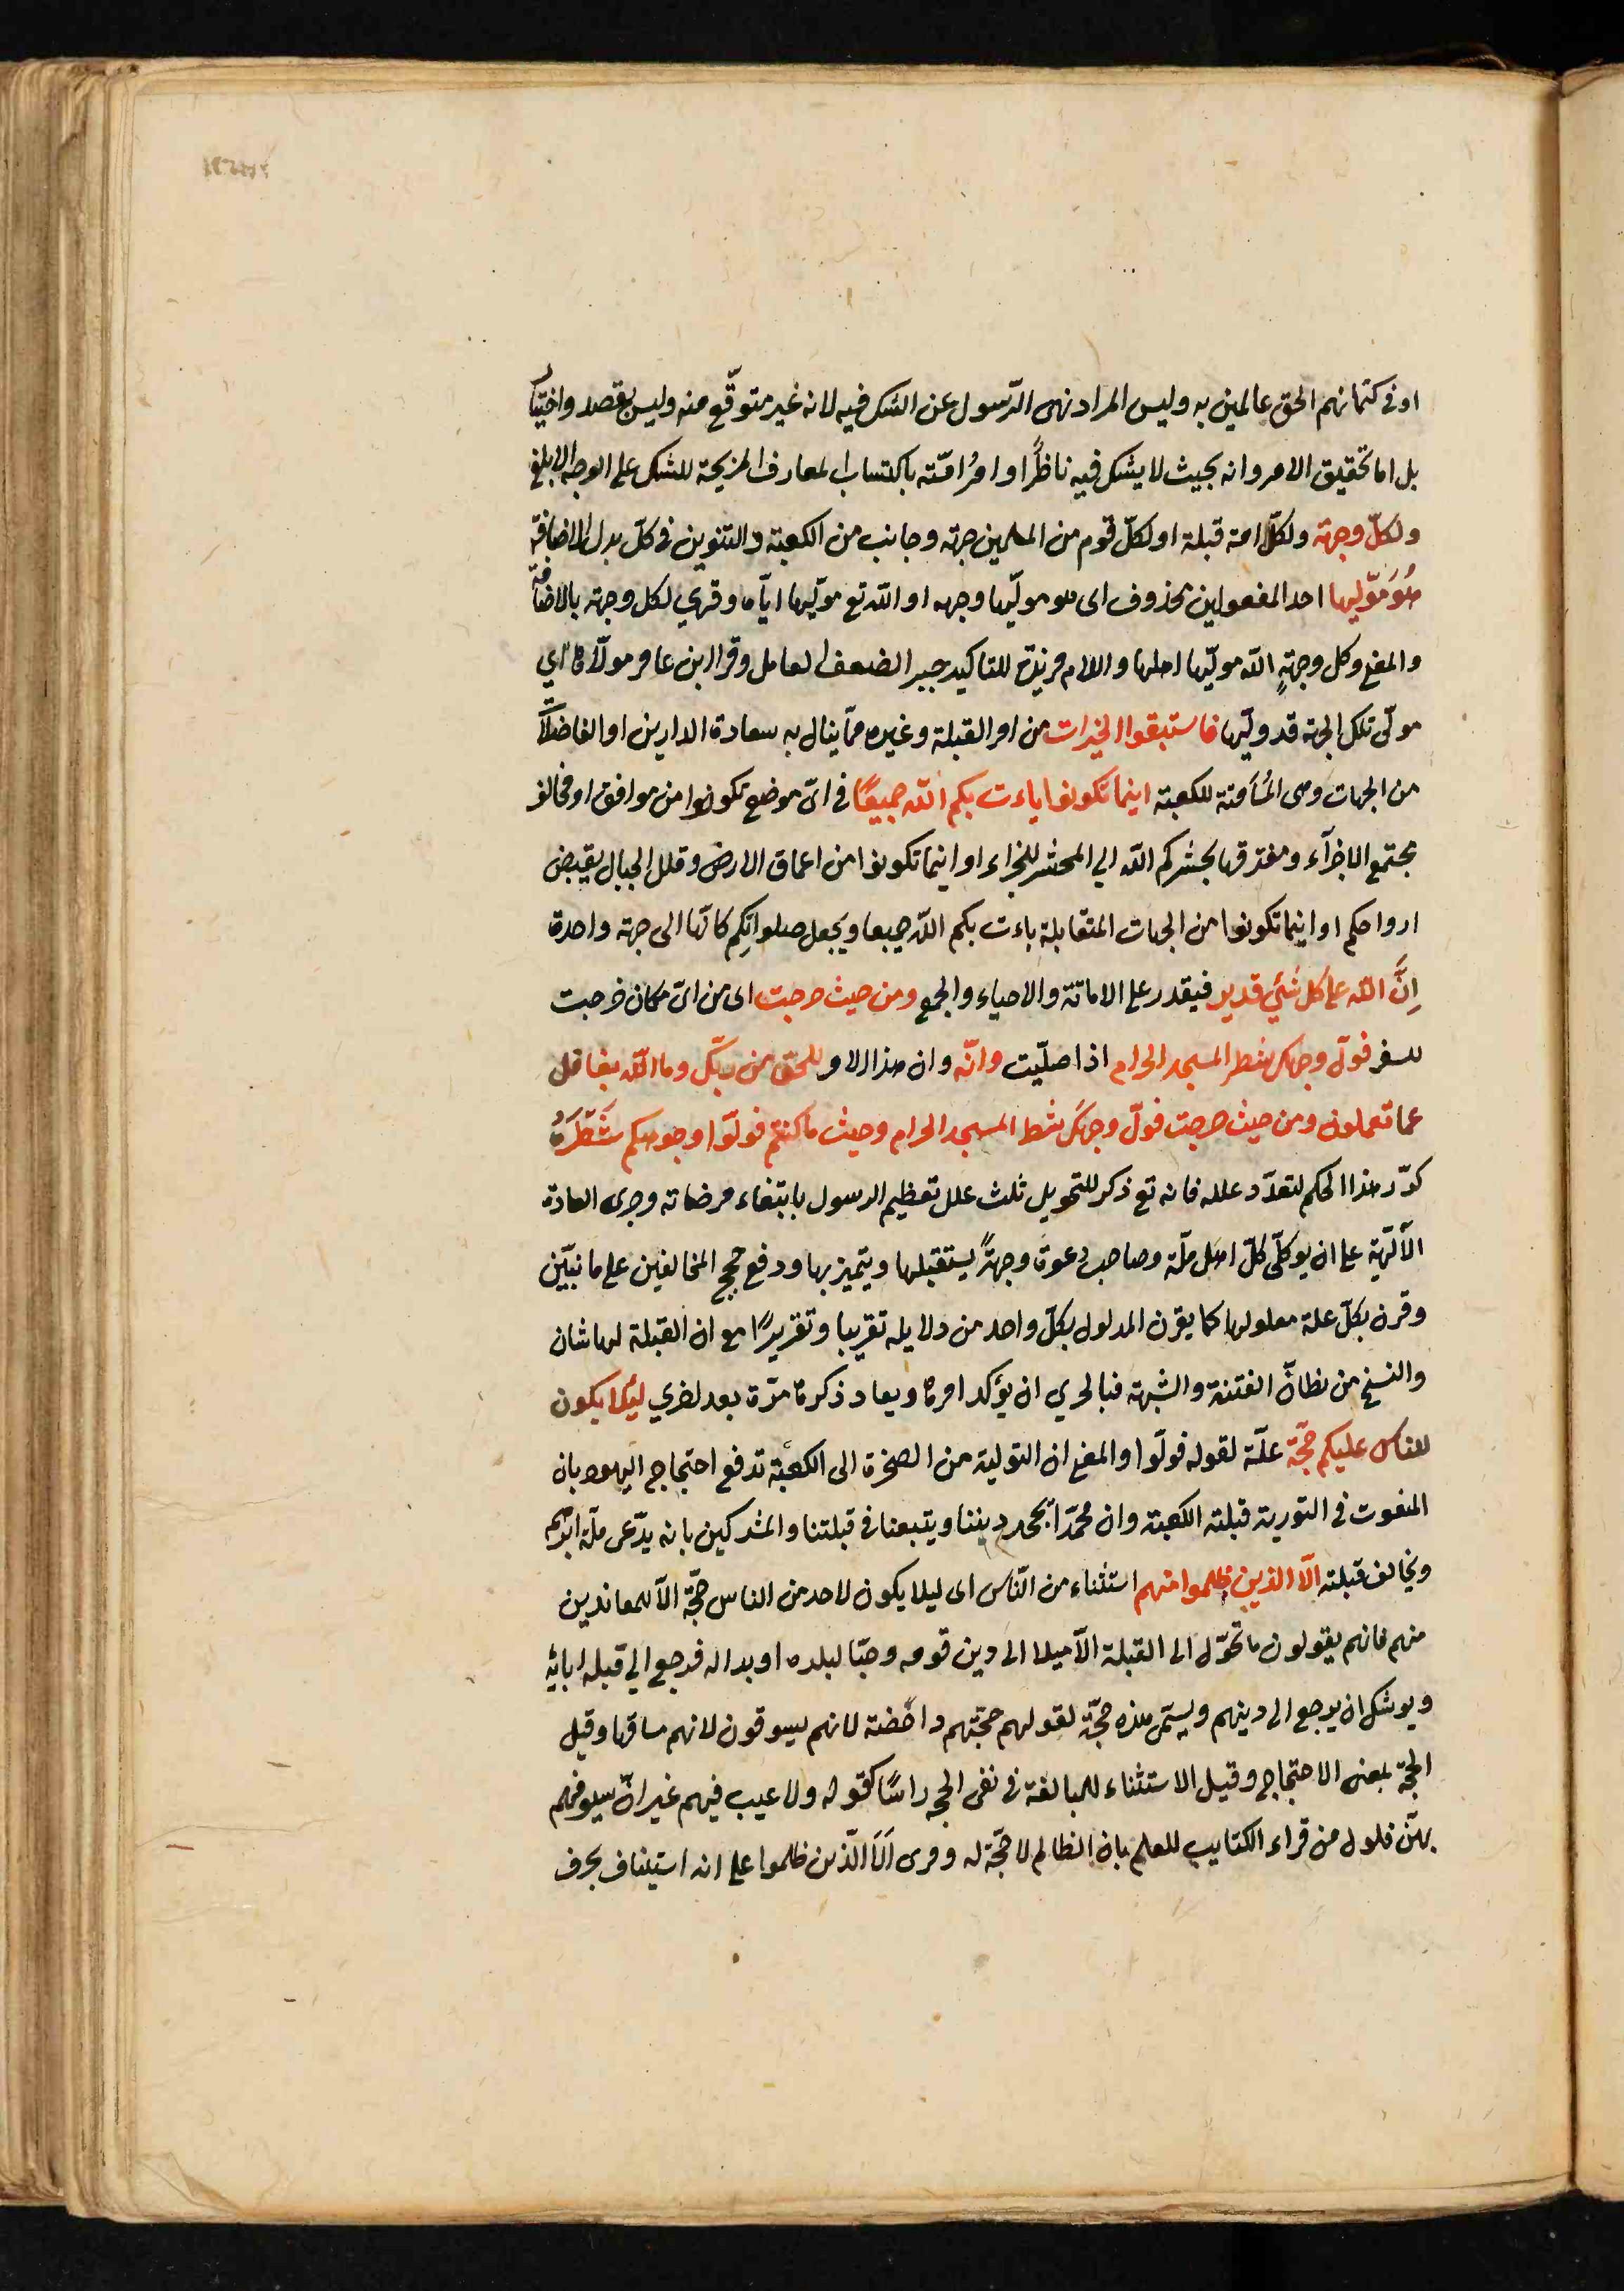 او فى كتمانهم الحق عالمين به وليس المراد نهى الرّسول عن الشك فيه لانه غير متوقّع منه وليس بقصد واختيار
بل اما تحقيق الامر وانه بحيث لا يشك فيه ناظرٌ او امرُ امّته باكتساب المعارف المزيحة للشك على الوجه الابلغ
ولكلّ وجهة ولكلّ امة قبلة او لكلّ قوم من المسلمين جهة وجانب من الكعبة والتنوين فى كلّ بدل الاضافة
هُوَ مُوَلّيها احد المفعولين محذوف اى هو مولّيها وجهه او الله تع مولّيها ايّاه وقرئ لكل وجهة بالاضافة
والمعنى وكل وجهةٍ الله مولّيها اهلها واللام مزيدة للتاكيد جبر الضعف العامل وقرا ابن عامر مولّاها اي
مولّى تلك الجهة قد وليّها فاستبقوا الخيرات من امر القبلة وغيره ممّا ينال به سعادة الدارين او الفاضلات
من الجهات وهى المُسَامتة للكعبة اينما تكونوا ياءت بكم الله جميعًا فى اىّ موضع تكونوا من موافق او مخالف
مجتمع الاجزآء ومفترقها يحشركم الله الي المحشر للجزاء او اينما تكونوا من اعماق الارض وقلل الجبال يقبض
ارواحكم او اينما تكونوا من الجهات المتقابلة ياءت بكم الله جميعا ويجعل صلواتِكم كانّها الى جهة واحدة
اِنَّ الله على كل شئي قدير فيقدر على الاماتة والاحياء والجمع ومن حيث خرجت اى من اىّ مكان خرجت
للسفر فولّ وجهك شطر المسجد الحرام اذا صلّيت وانّه وان هذا الامر للحقّ من ربّك وما الله بغافل
عما تعملون ومن حيث خرجت فولّ وجهكَ شطر المسجد الحرام وحيث ما كنتم فولّوا وجوهكم شَطْرَهُ
كرّر هذا الحكم لتعدّد علله فانه تع ذكر للتحويل ثلث علل تعظيم الرسول بابتغاء مرضاته وجرى العادة
الآلهيّة على ان يولّى كلّ اهل ملّة وصاحب دعوة وجهةً يستقبلها ويتميز بها ودفع حجج المخالفين على ما نبيّن
وقرن بكلّ علة معلولها كما يقرن المدلول بكلّ واحد من دلايله تقريبا وتقريرًا مع ان القبلة لها شان
والنسخ من مظانّ الفتنة والشبهة فبالحري ان يؤكد امرها ويعاد ذكرها مرّة بعد اخري ليلا يكون
للناس عليكم حجّة علّة لقوله فولّوا والمعنى ان التولية من الصخرة الى الكعبة تدفع احتجاج اليهود بان
المنعوت فى التورية قبلته الكعبة وان محمّدًا يجحد ديننا ويتبعنا فى قبلتنا والمشركين بانه يدّعى ملّة ابرهيم
ويخالف قبلته الّا الذين ظلموا منهم استثناء من النّاس اى ليلا يكون لاحد من الناس حجّة الّا للمعاندين
منهم فانهم يقولون ما تحوّل الى القبلة الّا ميلا الى دين قومه وحبّا لبلده او بدا له فرجع الي قبلة ابائه
ويوشك ان يرجع الى دينهم ويسمّى هذه حجّة لقولهم حجّتهم داحضة لانهم يسوقون لانهم مساقها وقيل
الحجّة بمعنى الاحتجاج وقيل الاستثناء للمبالغة فى نفى الحجه راسًا كقوله ولا عيب فيهم غير انّ سيوفهم
بهنّ فلول من قراع الكتايب للعلم بان الظالم لا حجّة له وقرى اَلَا الّذين ظلموا على انه استيناف بحرف